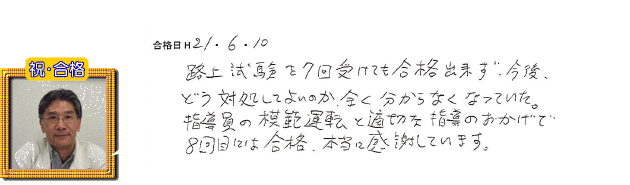 祝・合格
合格日H21・6・10
路上試験を7回受けても合格出来ず、今後、
どう対処してよいのか、全く分からなくなっていた。
指導員の模範運転と適切な指導のおかげで
8回目には合格、本当に感謝しています。